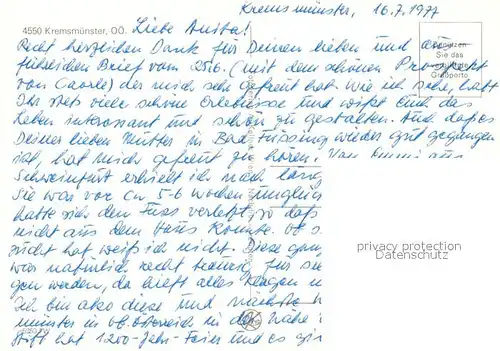 Kremsmünster, 16.7.1977
4550 Kremsmünster, OÖ.
Liebe Anita!
Recht herzlichen Dank für Deinen lieben und aus-
führlichen Brief vom 25.6. (mit dem schönen Prospekt
von Caorle) der mich sehr gefreut hat. Wie ich sehe, habt
Ihr stets viele schöne Erlebnisse und wißt Euch das
Leben interessant und schön zu gestalten. Und daß es
Deiner lieben Mutter in Bad Füssing wieder gut gegangen
ist, hat mich gefreut zu hören. Von
Schweinfurt erhielt ich nach lang
Sie war vor ca 5-6 Wochen unglück
hatte sich den Fuss verletzt, so daß
nicht aus dem Haus konnte. Ob s
sucht hat weiß ich nicht. Diese gan
war natürlich recht traurig für sie
gen werden, da hilft alles klagen n
Ich bin also diese und nächste W
münster in Ob. Österreich in der Nähe
Stift hat 1200-Jahr-Feier und es gi
Benützen
Sie das
Großporto
privacy protection
Datenschutz